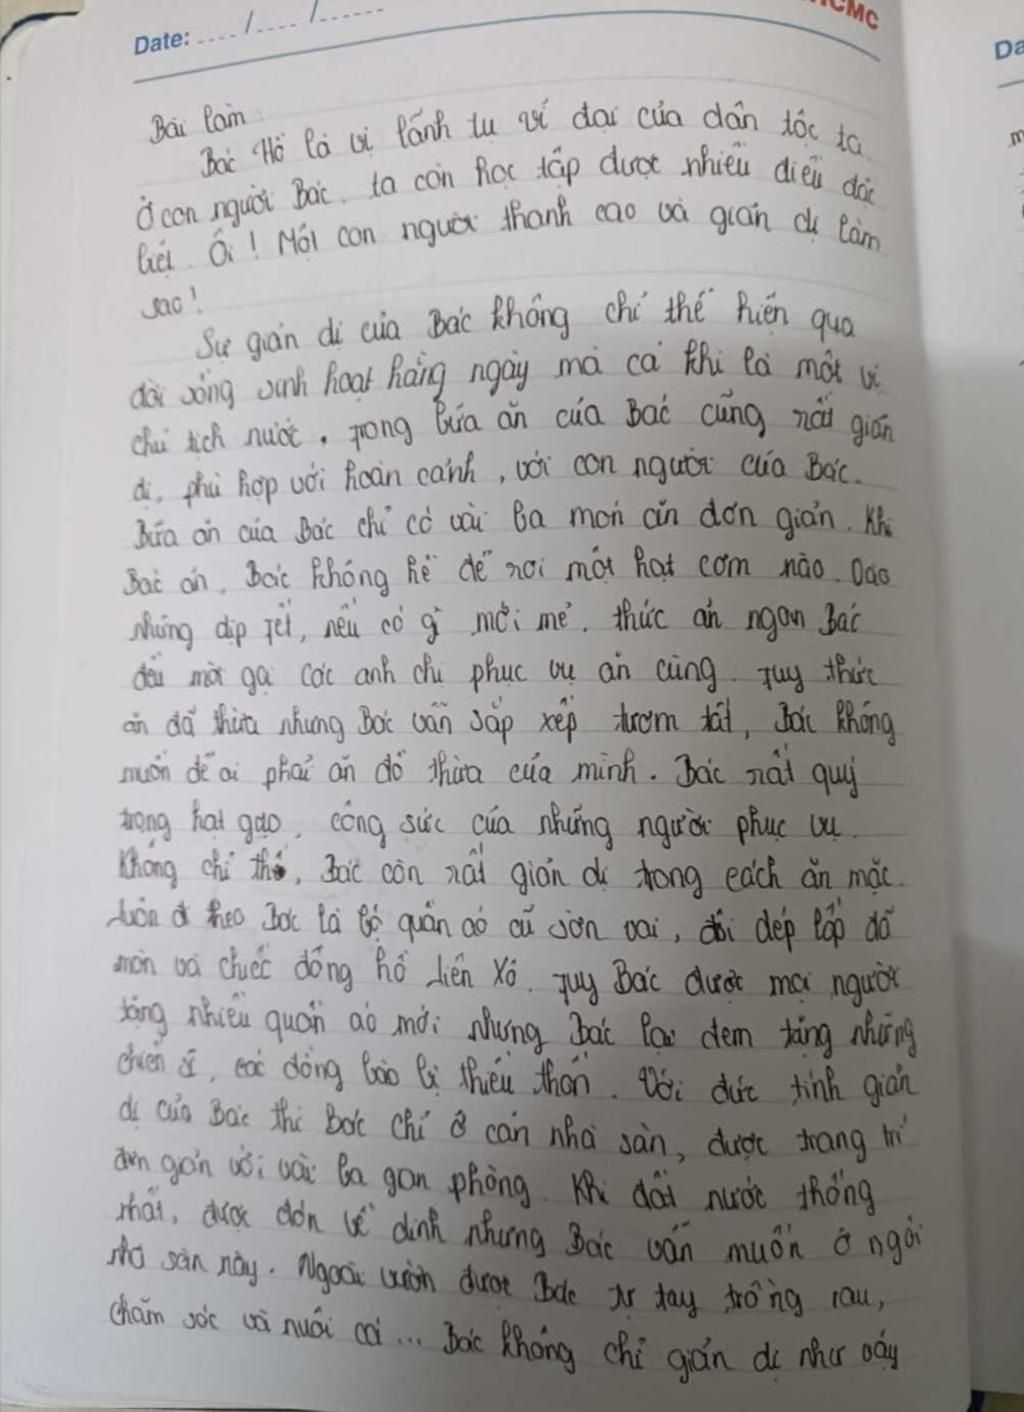 HCMC
Date: ..../..../......
Da
Bài làm
Bác Hồ là vị lãnh tụ vĩ đại của dân tộc ta.
Ở con người Bác, ta còn học tập được nhiều điều đặc
biệt. Ôi! Một con người thanh cao và giản dị làm
sao!
Sự giản dị của Bác không chỉ thể hiện qua
đời sống sinh hoạt hằng ngày mà cả khi là một vị
chủ tịch nước. Trong bữa ăn của Bác cũng rất giản
dị, phù hợp với hoàn cảnh, với con người của Bác.
Bữa ăn của Bác chỉ có vài ba món ăn đơn giản. Khi
Bác ăn, Bác không hề để rơi một hạt cơm nào. Vào
những dịp Tết, nếu có gì mới mẻ, thức ăn ngon Bác
đều mời gọi các anh chị phục vụ ăn cùng. Tuy thức
ăn đã thừa nhưng Bác vẫn sắp xếp tươm tất, Bác không
muốn để ai phải ăn đồ thừa của mình. Bác rất quý
trọng hạt gạo, công sức của những người phục vụ.
Không chỉ thế, Bác còn rất giản dị trong cách ăn mặc.
Luôn đi theo Bác là bộ quần áo cũ sờn vai, đôi dép lốp đã
mòn và chiếc đồng hồ Liên Xô. Tuy Bác được mọi người
tặng nhiều quần áo mới nhưng Bác lại đem tặng những
chiến sĩ, các đồng bào bị thiếu thốn. Với đức tính giản
dị của Bác thì Bác chỉ ở căn nhà sàn, được trang trí
đơn giản với vài ba gian phòng. Khi đất nước thống
nhất, được đón về dinh nhưng Bác vẫn muốn ở ngôi
nhà sàn này. Ngoài vườn được Bác tự tay trồng rau,
chăm sóc và nuôi cá... Bác không chỉ giản dị như vậy